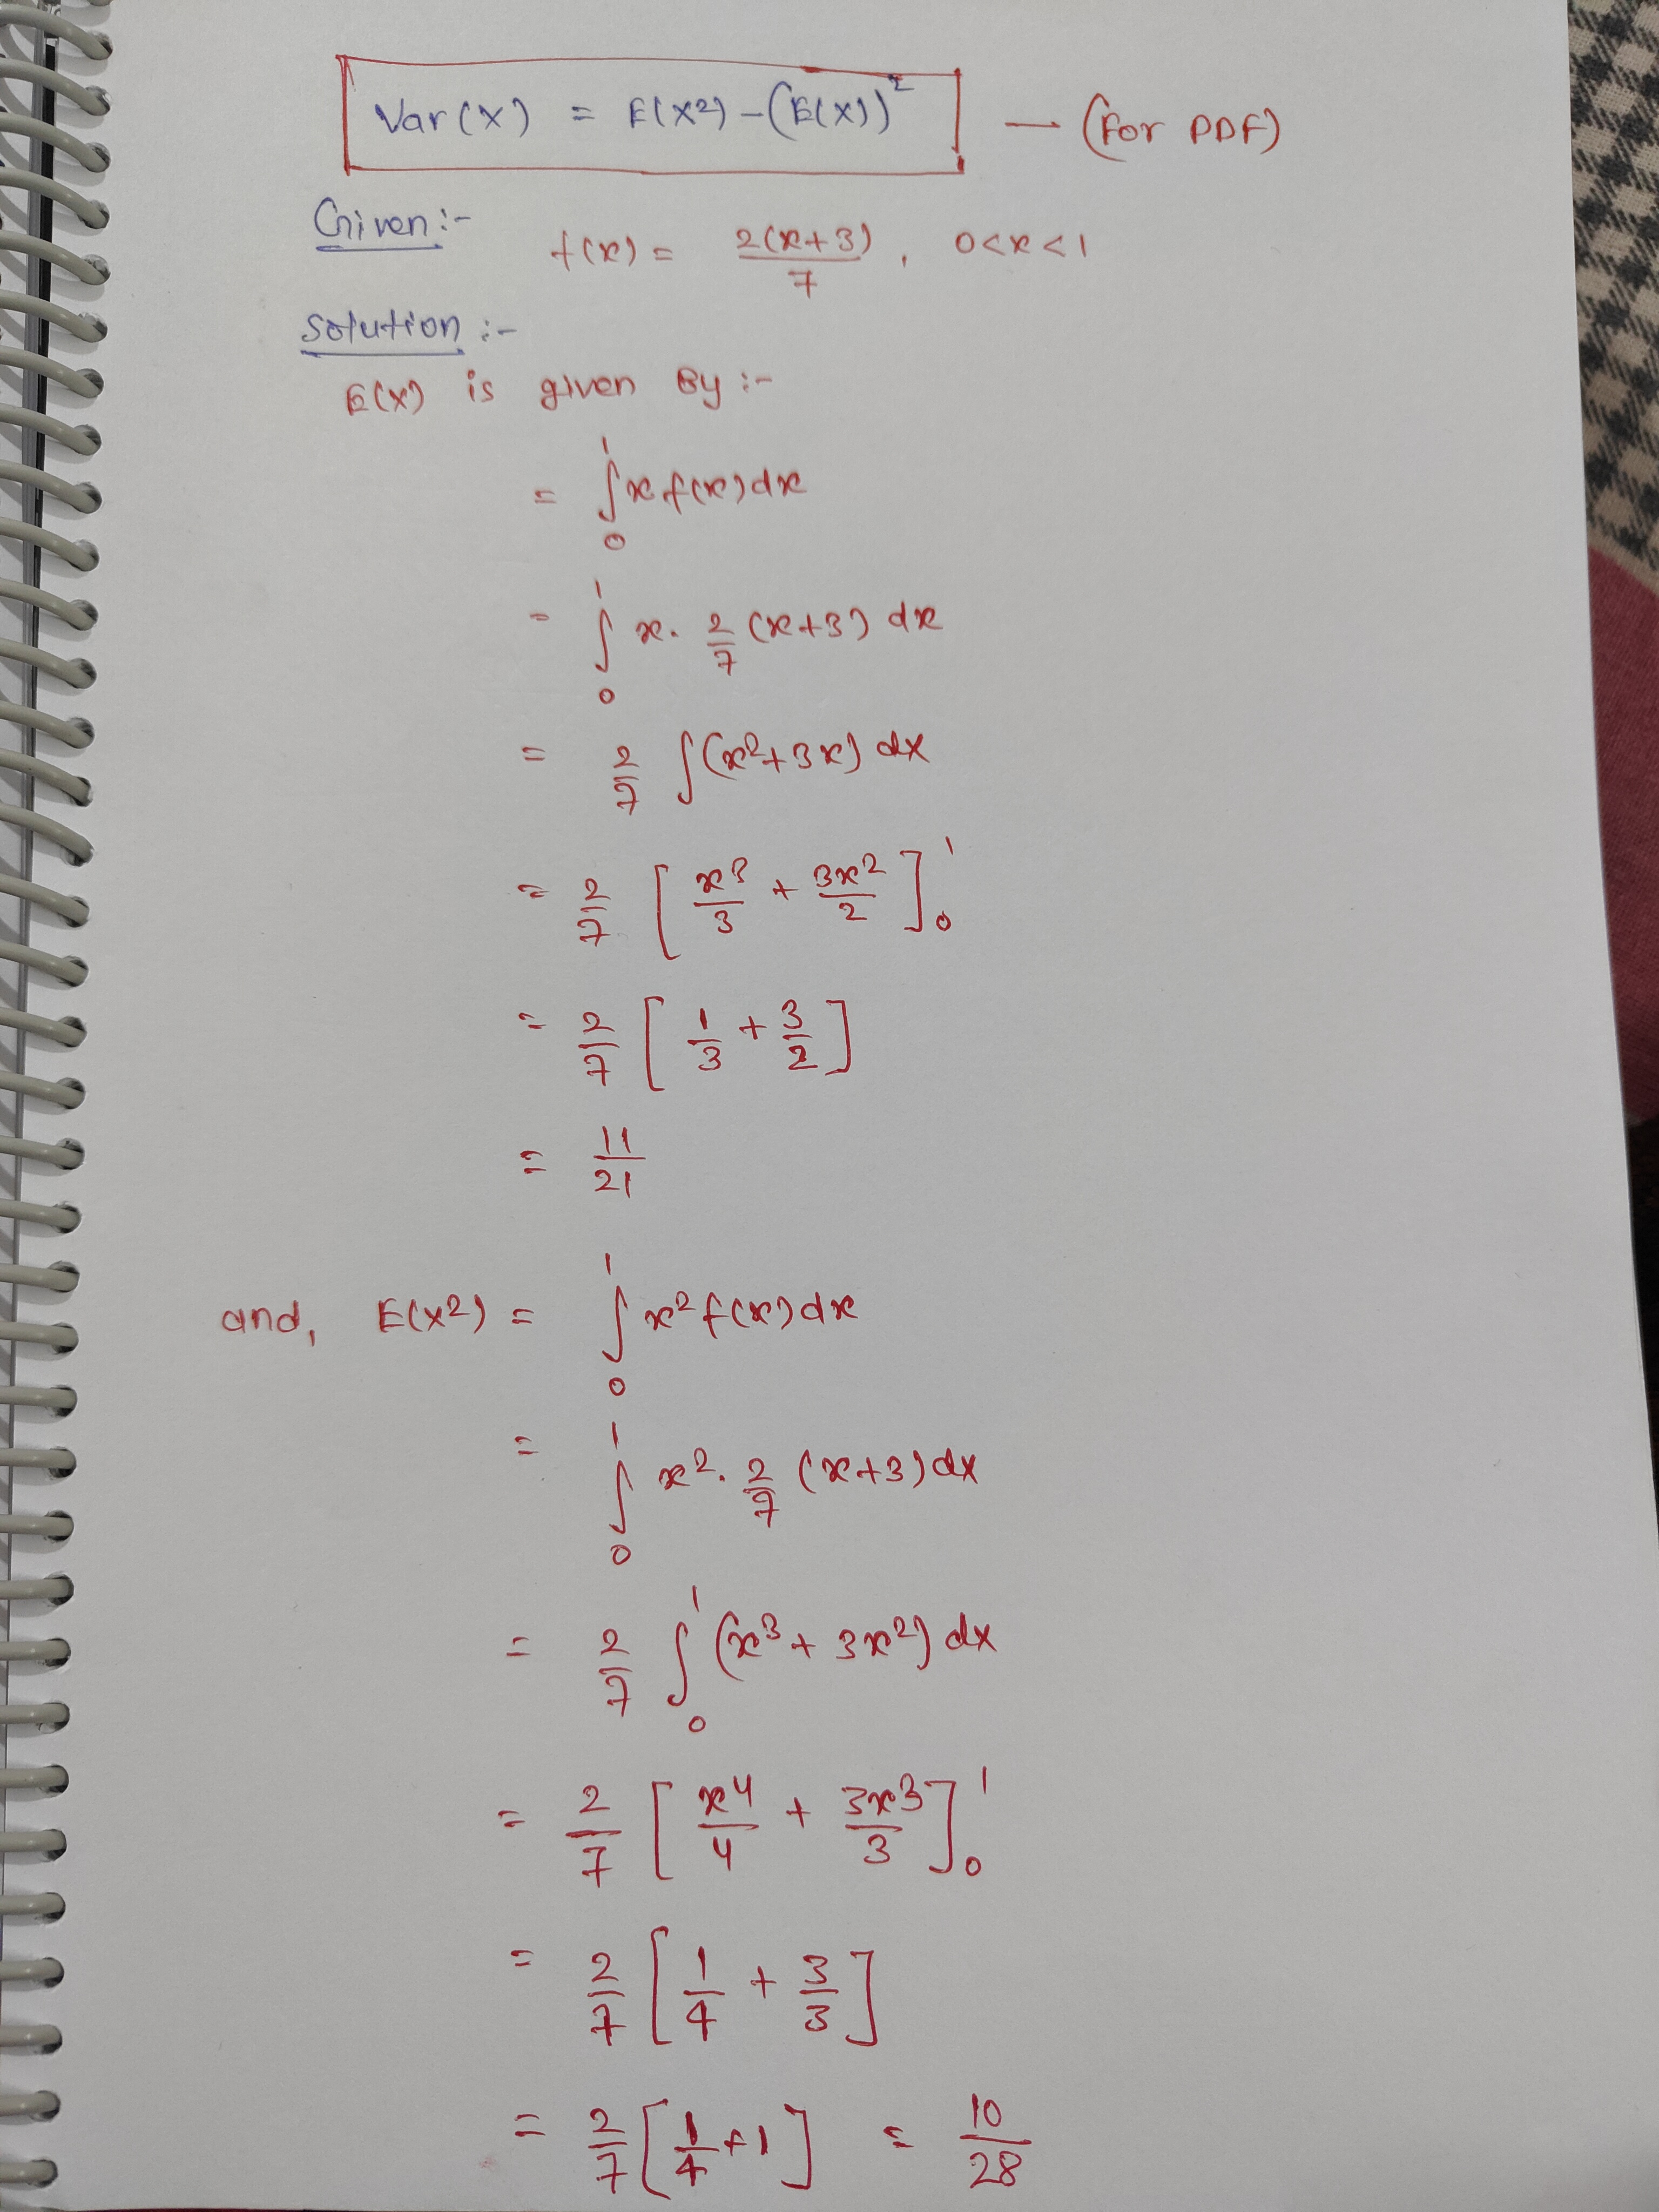 Var(X) = E(X2) - (E(X))² — (For PDF)
Given :-
f(x) = 2(x+3)/7 , 0<x<1
Solution :-
E(X) is given By :-
= ∫₀¹ x f(x) dx
= ∫₀¹ x. 2/7 (x+3) dx
= 2/7 ∫(x²+3x) dx
= 2/7 [x³/3 + 3x²/2]₀¹
= 2/7 [1/3 + 3/2]
= 11/21
and, E(X2) = ∫₀¹ x² f(x) dx
= ∫₀¹ x². 2/7 (x+3) dx
= 2/7 ∫₀¹ (x³ + 3x²) dx
= 2/7 [x⁴/4 + 3x³/3]₀¹
= 2/7 [1/4 + 3/3]
= 2/7 [1/4 + 1] = 10/28